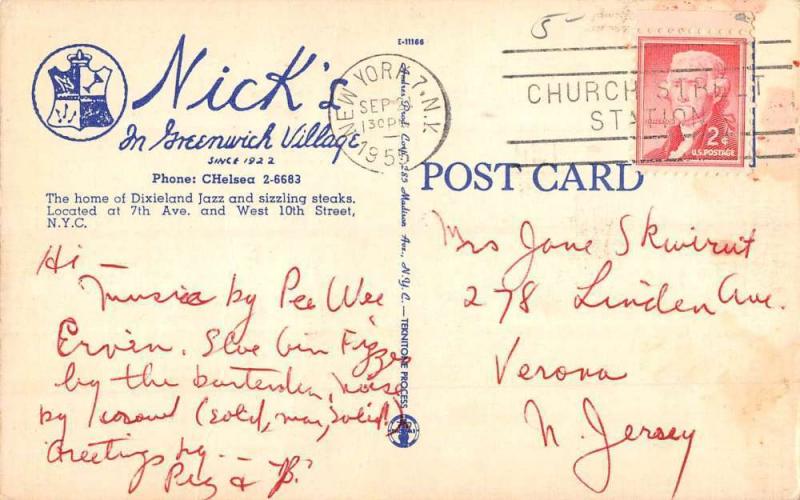 E-11166
5-
Nick's
In Greenwich Village
SINCE 1922
Phone: CHelsea 2-6683
The home of Dixieland Jazz and sizzling steaks.
Located at 7th Ave. and West 10th Street,
N.Y.C.
NEW YORK 7, N.Y.
SEP
130PM
CHURCH STREET
STATION
2¢
U.S. POSTAGE
POST CARD
285 Madison Ave., N.Y.C. — TEKNITONE PROCESS
Hi —
Music by Pee Wee
Ervin. Sloe Gin Fizzes
by the bartender, noise
by crowd (solid, man, solid!)
Greetings by —
Peg & "B."
Mrs Jane Skwirut
278 Linden Ave.
Verona
N. Jersey